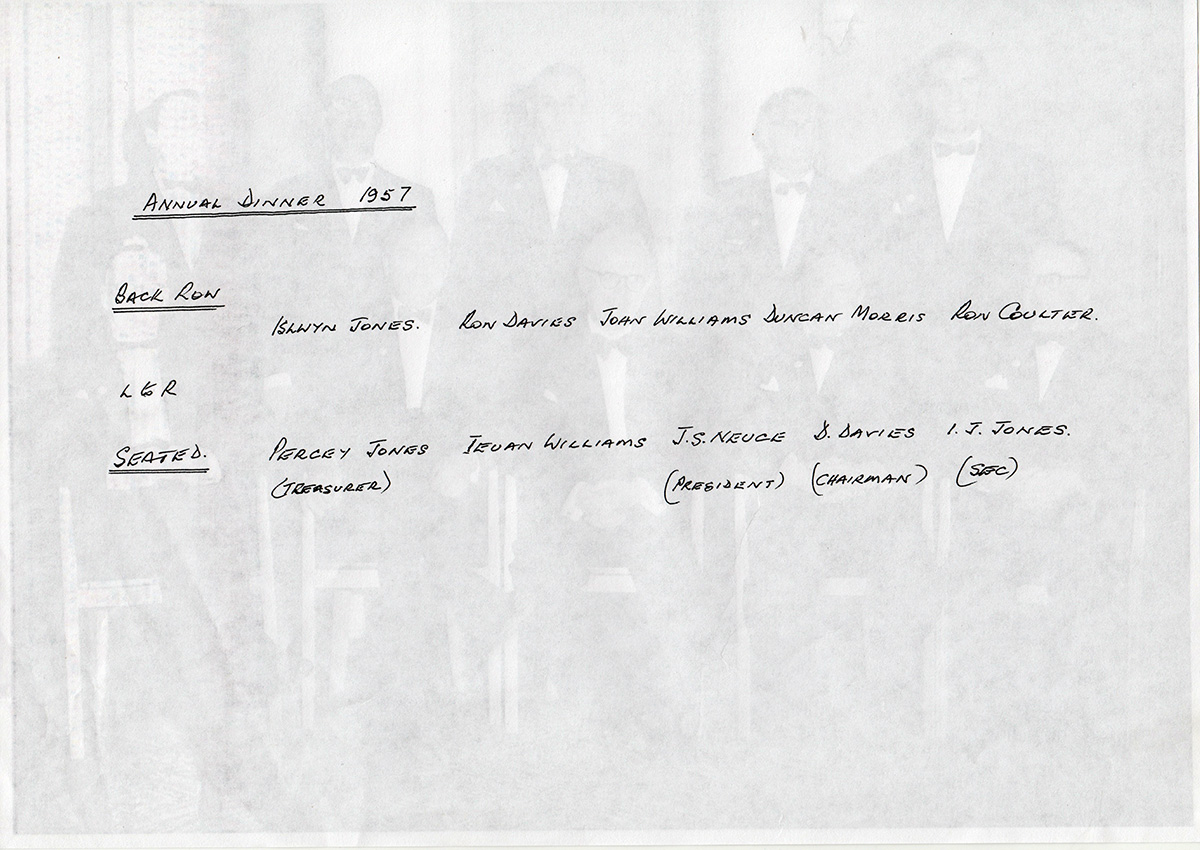 ANNUAL DINNER 1957
BACK ROW
ISLWYN JONES. RON DAVIES JOHN WILLIAMS DUNCAN MORRIS RON COULTER.
L to R
SEATED. PERCEY JONES IEUAN WILLIAMS J.S. NEUCE D. DAVIES I. J. JONES.
(TREASURER) (PRESIDENT) (CHAIRMAN) (SEC)